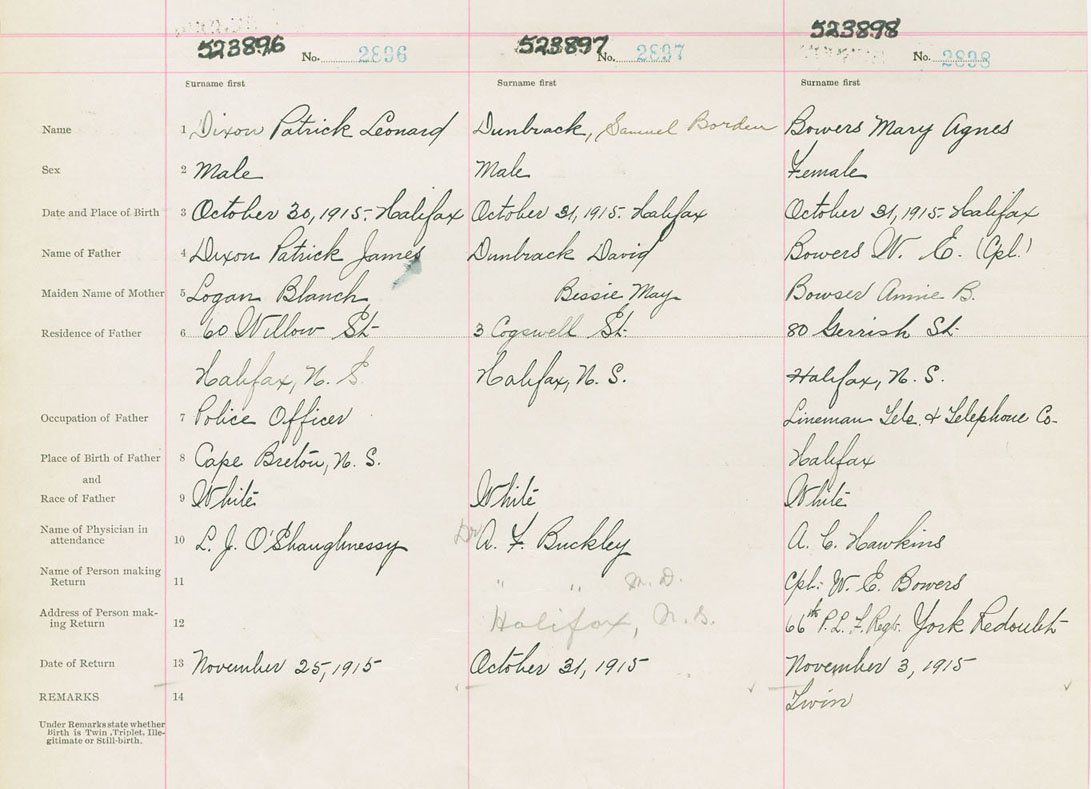 523896 523897 523898
No. 2896 No. 2897 No. 2898
Surname first Surname first Surname first
Name 1 Dixon Patrick Leonard Dunbrack, Samuel Borden Bowers Mary Agnes
Sex 2 Male Male Female
Date and Place of Birth 3 October 30, 1915. Halifax October 31, 1915. Halifax October 31, 1915. Halifax
Name of Father 4 Dixon Patrick James Dunbrack David Bowers W. E. (Cpl.)
Maiden Name of Mother 5 Logan Blanch Bessie May Bowser Annie B.
Residence of Father 6 60 Willow St. 3 Cogswell St. 80 Gerrish St.
Halifax, N. S. Halifax, N. S. Halifax, N. S.
Occupation of Father 7 Police Officer Lineman Tele. & Telephone Co.
Place of Birth of Father 8 Cape Breton, N. S. Halifax
and
Race of Father 9 White White White
Name of Physician in
attendance 10 L. J. O'Shaughnessy Dr A. F. Buckley A. C. Hawkins
Name of Person making
Return 11 " " M. D. Cpl: W. E. Bowers
Address of Person mak-
ing Return 12 Halifax, N. S. 66th P. L. F. Regt. York Redoubt
Date of Return 13 November 25, 1915 October 31, 1915 November 3, 1915
REMARKS 14 Twin
Under Remarks state whether
Birth is Twin, Triplet, Ille-
gitimate or Still-birth.